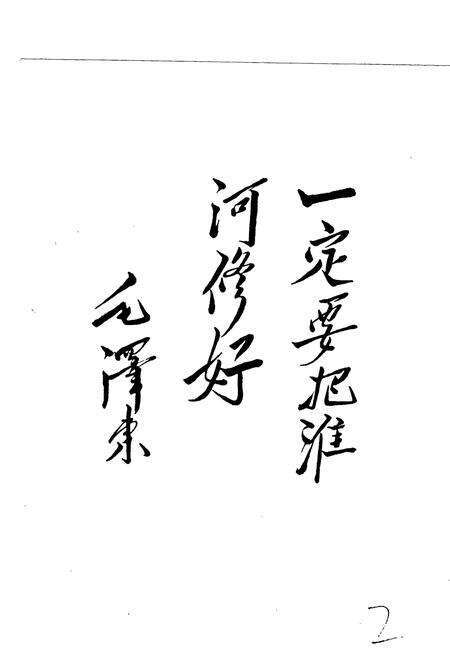 一定要把淮
河修好
毛澤東
2